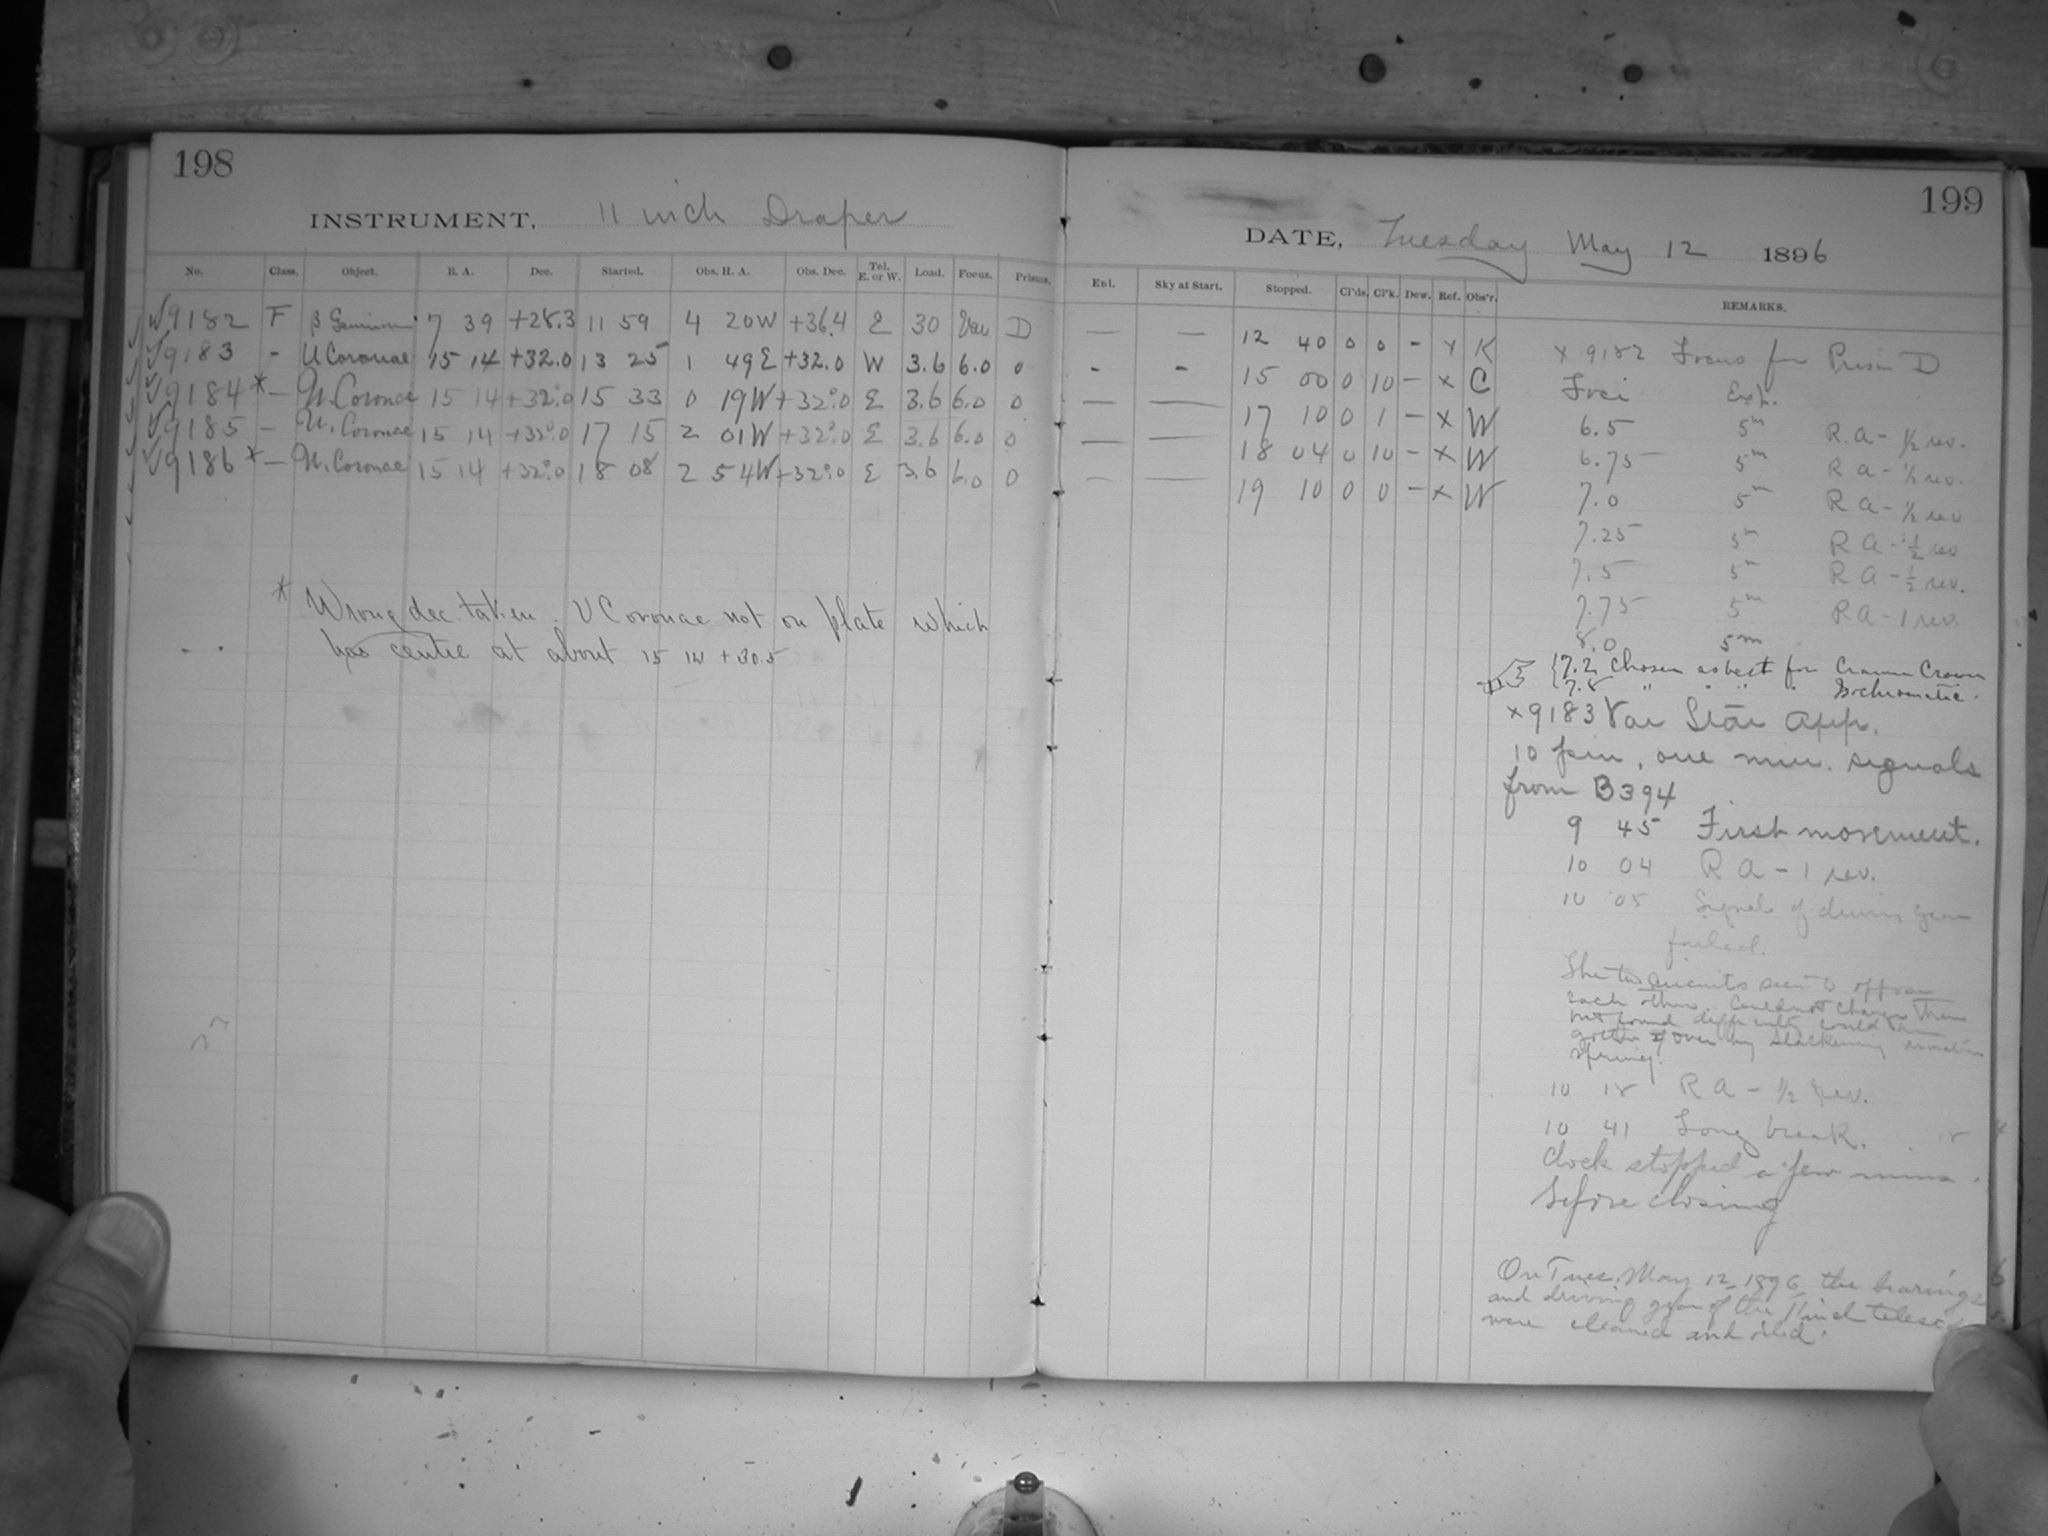 198
INSTRUMENT, 11 inch Draper
No. Class. Object. R. A. Dec. Started. Obs. H. A. Obs. Dec. Tel. E. or W. Load. Focus. Prisms.
√9182 F β Geminor 7 39 +28.3 11 59 4 20W +36.4 E 30 Var D
√9183 - U Coronae 15 14 +32.0 13 25 1 49E +32.0 W 3.6 6.0 0
√9184 * — U. Coronae 15 14 +32°.0 15 33 0 19W +32°.0 E 3.6 6.0 0
√9185 — U. Coronae 15 14 +32°.0 17 15 2 01W +32°.0 E 3.6 6.0 0
√9186 * — U. Coronae 15 14 +32°.0 18 08 2 54W +32°.0 E 3.6 6.0 0
* Wrong dec. taken. U Coronae not on plate which
has centre at about 15 14 +30.5
199
DATE, Tuesday May 12 1896
Enl. Sky at Start. Stopped. Cl'ds. Cl'k. Dew. Ref. Obs'r. REMARKS.
— — 12 40 0 0 - x K
- - 15 00 0 10 — x C
— — 17 10 0 1 — x W
— — 18 04 0 10 — x W
— — 19 10 0 0 — x W
x 9182 Focus for Prism D
Foci Exp.
6.5 5m R.A - ½ rev.
6.75 5m R A - ½ rev.
7.0 5m R A - ½ rev
7.25 5m R A - ½ rev
7.5 5m R A - ½ rev.
7.75 5m R A - 1 rev.
8.0 5m
{7.2 Chosen as best for Cramer Crown
7.8 " " " " Isochromatic.
x 9183 Var Star App.
10 min, one min. signals
from B394
9 45 First movement.
10 04 R A - 1 rev.
10 05 Signal of driving gear
failed.
The two circuits seem to oppose
each other. Could not change them
but found difficulty could be
gotten over by slackening
spring.
10 18 R A - ½ rev.
10 41 Long break.
Clock stopped a few mins.
before closing
On Tues. May 12, 1896 the bearings
and driving gear of the 11 inch
were cleaned and oiled.